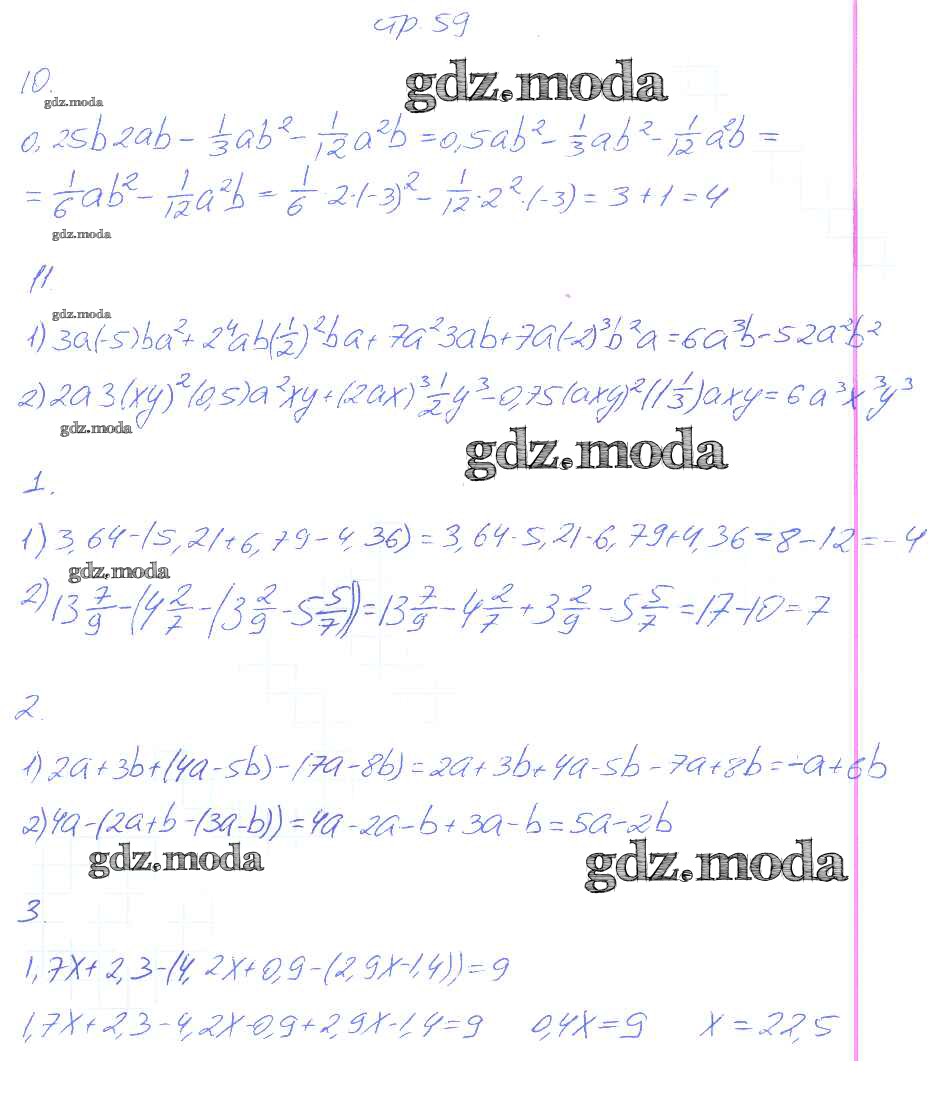 стр. 59
10.
gdz.moda
gdz.moda
0,25b2ab - 1/3 ab² - 1/12 a²b = 0,5ab² - 1/3 ab² - 1/12 a²b =
= 1/6 ab² - 1/12 a²b = 1/6 · 2·(-3)² - 1/12 · 2²·(-3) = 3 + 1 = 4
gdz.moda
11.
gdz.moda
1) 3a(-5)ba² + 2⁴ab(1/2)²ba + 7a²3ab + 7a(-2)³b²a = 6a³b - 52a²b²
2) 2a3(xy)²(0,5)a²xy + (2ax)³ 1/2 y³ - 0,75(axy)²(1 1/3)axy = 6a³x³y³
gdz.moda
gdz.moda
1.
1) 3,64-(5,21+6,79-4,36) = 3,64-5,21-6,79+4,36 = 8-12 = -4
gdz.moda
2) 13 7/9 - (4 2/7 - (3 2/9 - 5 5/7)) = 13 7/9 - 4 2/7 + 3 2/9 - 5 5/7 = 17-10 = 7
2.
1) 2a+3b+(4a-5b)-(7a-8b) = 2a+3b+4a-5b-7a+8b = -a+6b
2) 4a-(2a+b-(3a-b)) = 4a-2a-b+3a-b = 5a-2b
gdz.moda
gdz.moda
3.
1,7x+2,3-(4,2x+0,9-(2,9x-1,4)) = 9
1,7x+2,3-4,2x-0,9+2,9x-1,4 = 9 0,4x = 9 x = 22,5